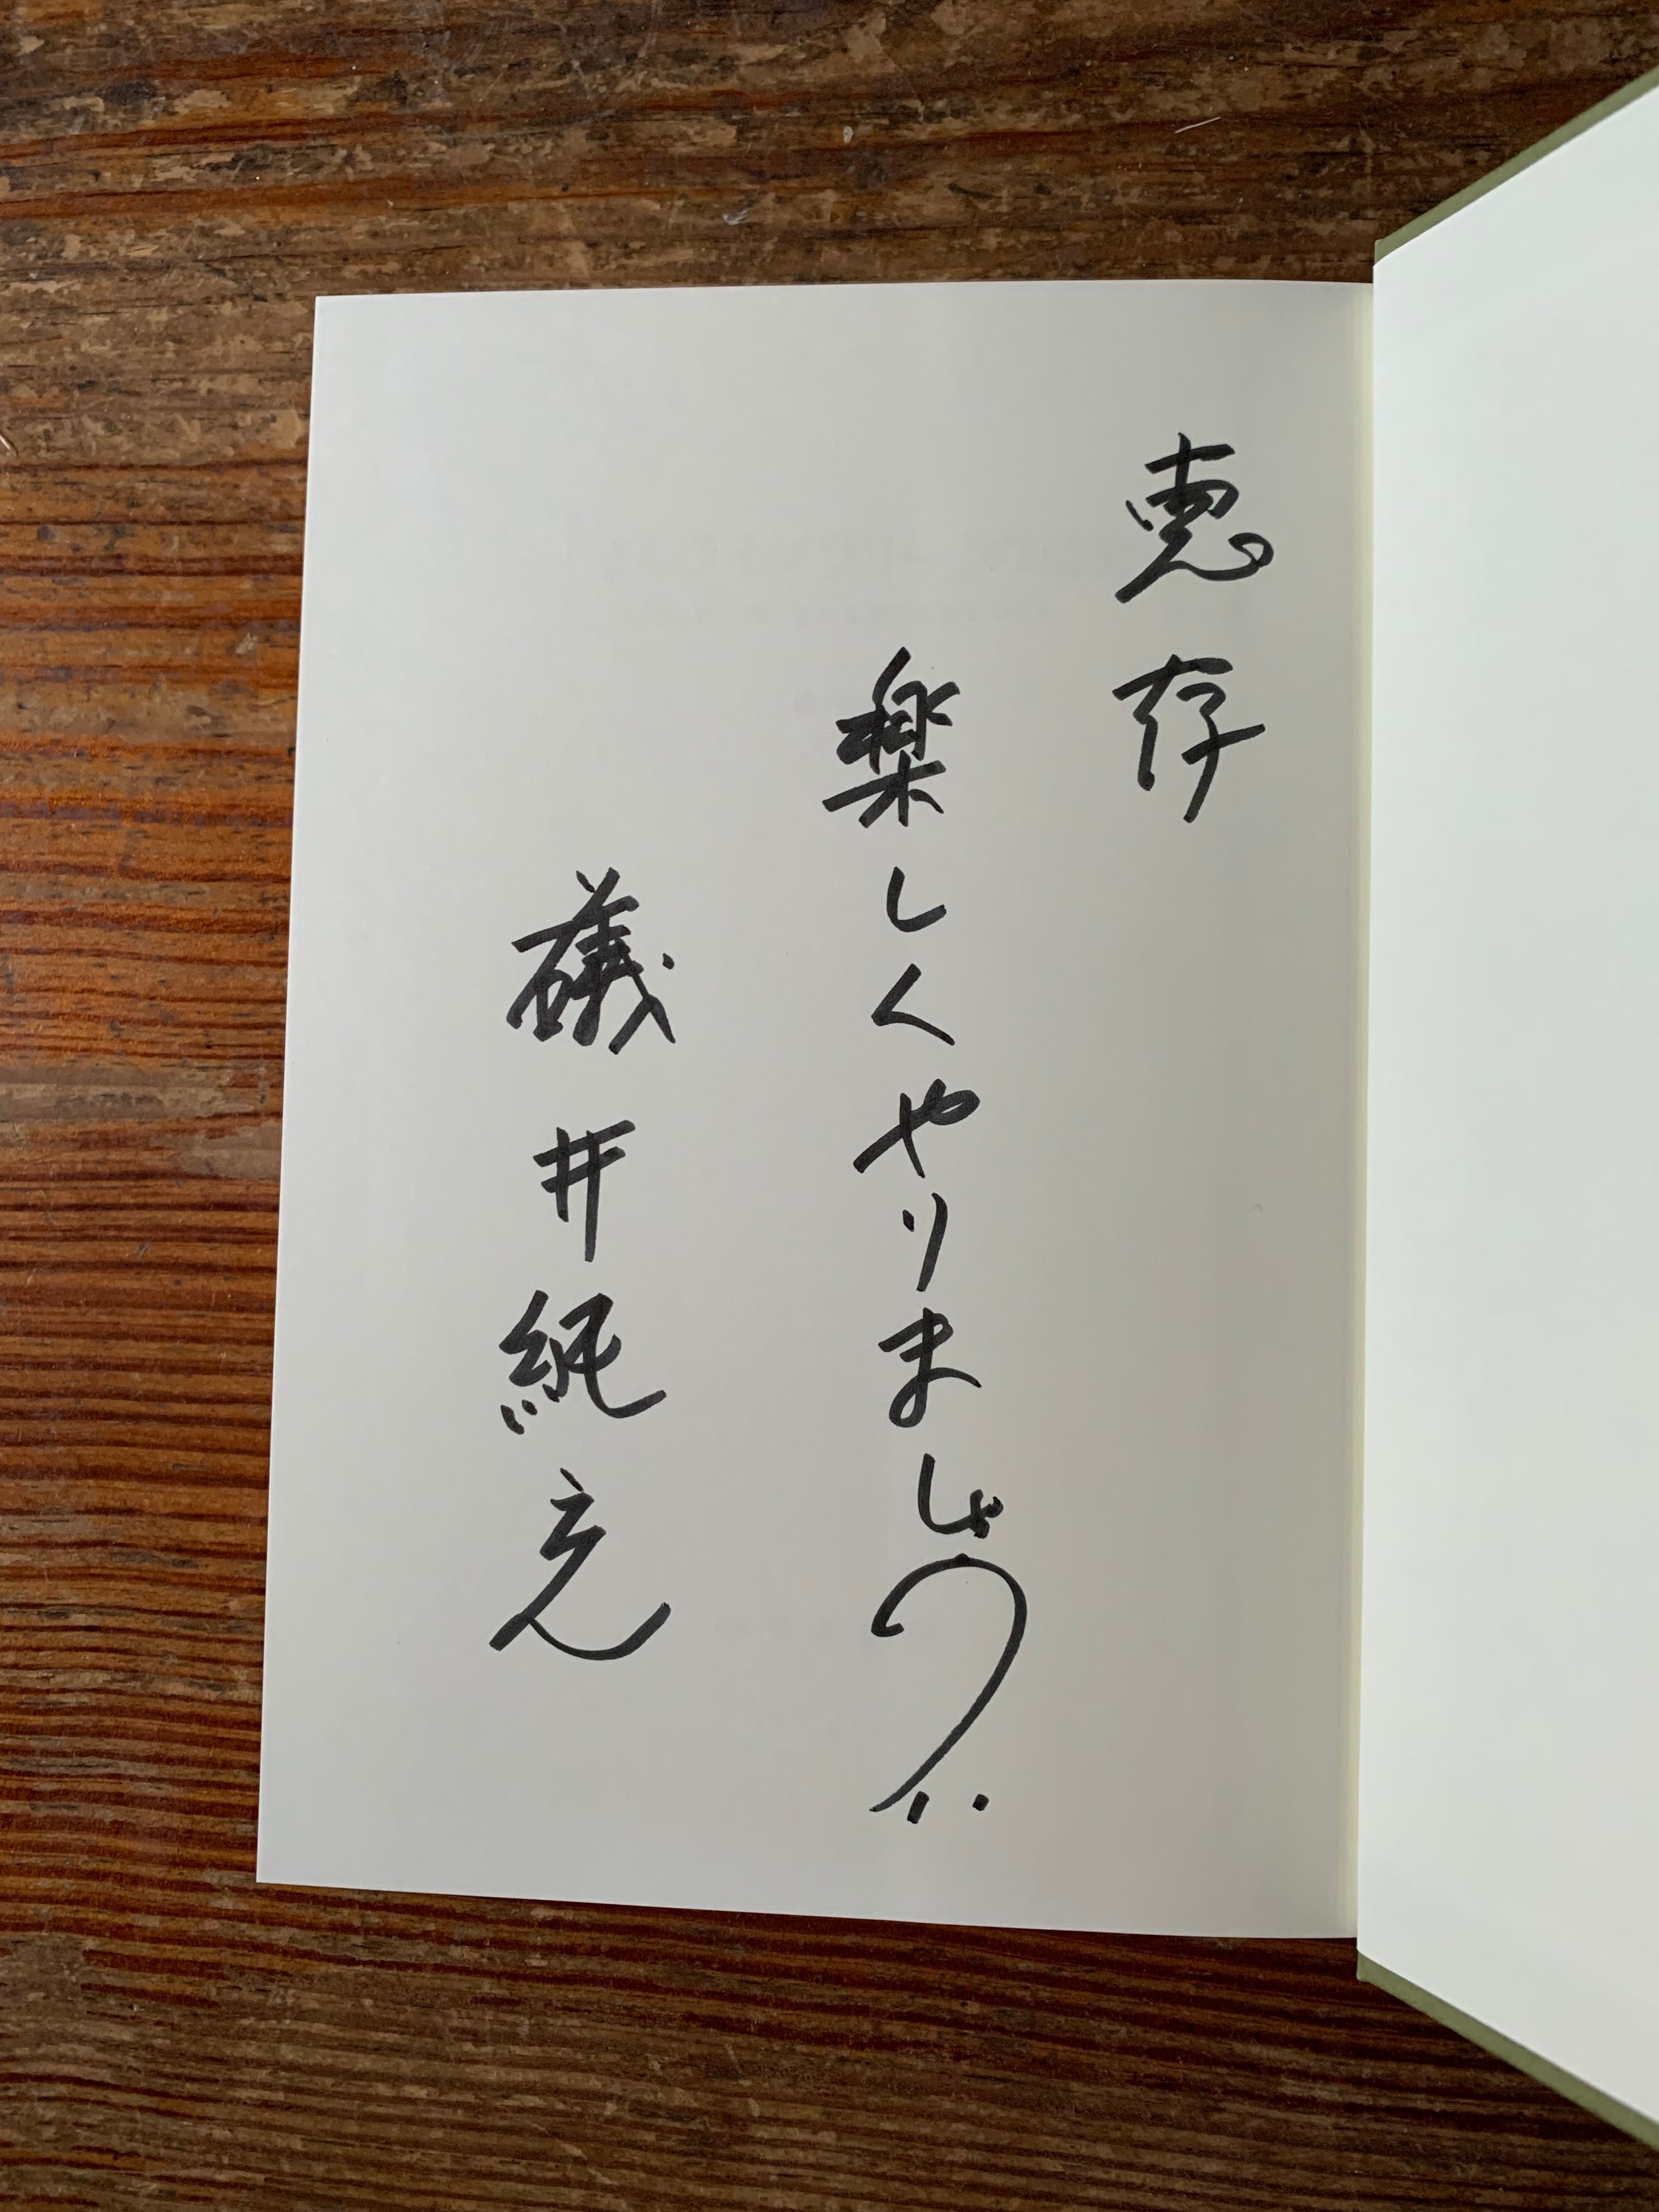 恵存
楽しくやりましょう
礒井純充